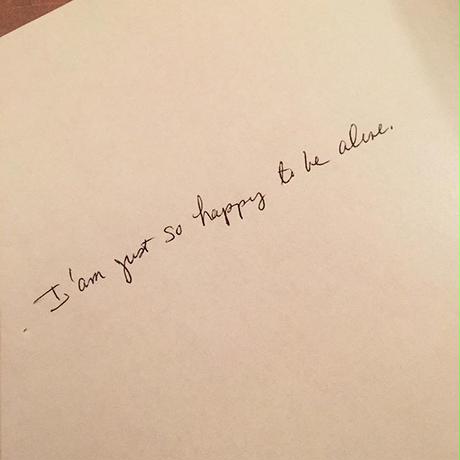 I'am just so happy to be alive.